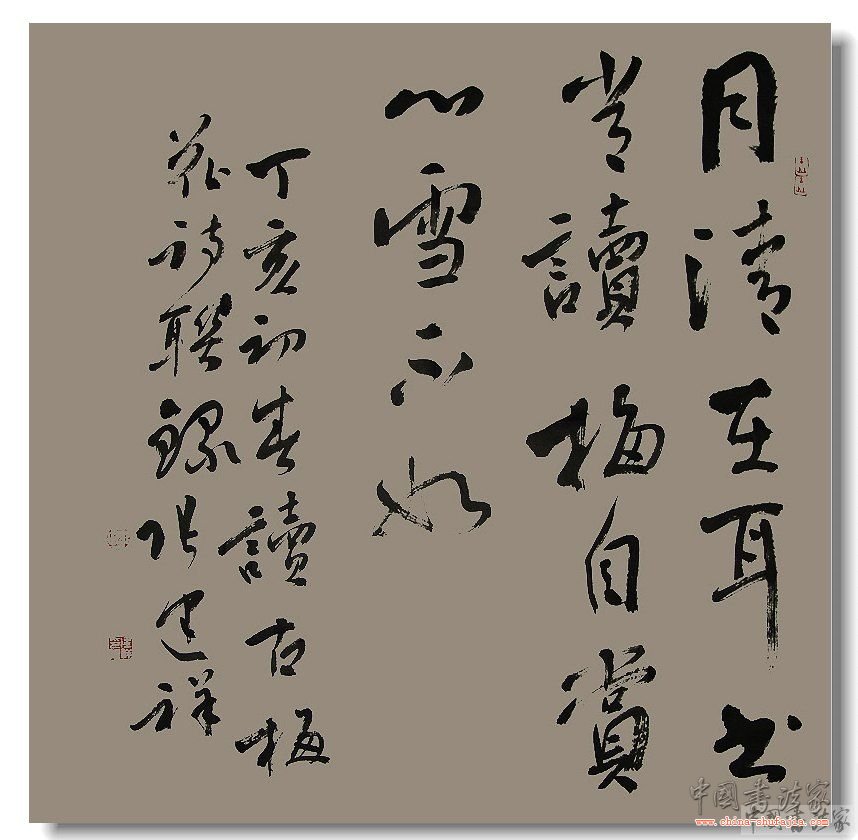 月清在耳书
讀梅自賞
心雪不如
丁亥初春讀古梅
花詩聯録張建祥
中國書法家
www.china-shufajia.com